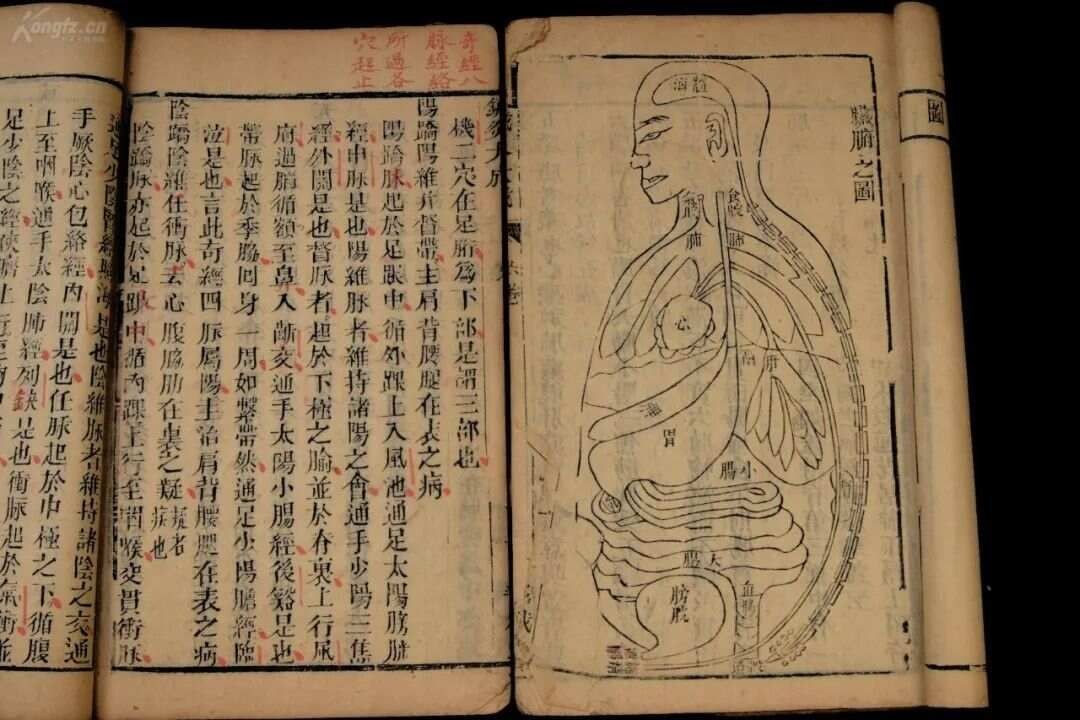 圖
臟腑之圖
髓海
食喉
喉
肺
肺
心
肝
脾
胃
小腸
大腸
膀胱
奇經八
脉經絡
所過各
穴起止
機二穴在足䏶為下部是謂三部也
陽蹻陽維并督帶主肩背腰腿在表之病
陽蹻脉起於足跟中循外踝上入風池通足太陽膀胱
經申脉是也陽維脉者維持諸陽之會通手少陽三焦
經外關是也督脉者起於下極之腧並於脊裏上行風
府過腦循額至鼻入齗交通手太陽小腸經後谿是也
帶脉起於季脇囘身一周如繫帶然通足少陽膽經臨
泣是也言此奇經四脉屬陽主治肩背腰腿在表之病
陰蹻陰維任衝脉去心腹脇肋在裏之疑疑者病也
陰蹻脉亦起於足跟中循內踝上行至咽喉交貫衝脉
通足少陰腎經照海是也陰維脉者維持諸陰之交通
手厥陰心包絡經內關是也任脉起於中極之下循腹
上至咽喉通手太陰肺經列缺是也衝脉起於氣衝並
足少陰之經俠臍上行至
Kongfz.cn